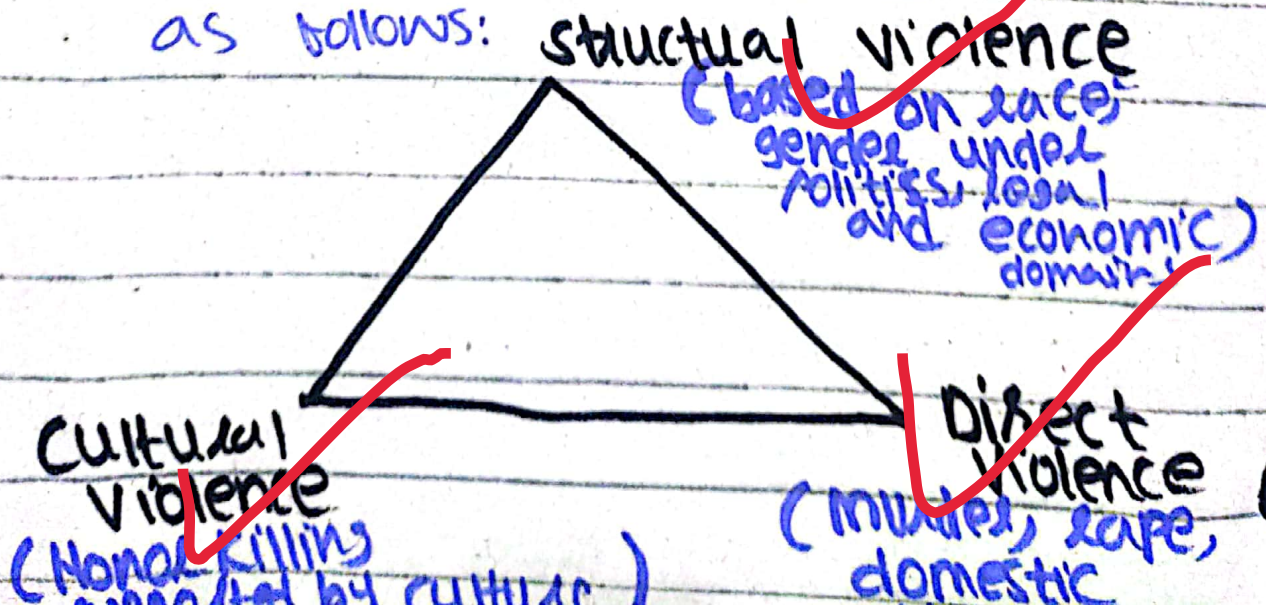 as follows: structual violence
(based on race,
gender under
politiss, legal
and economic)
domains
Cultural
violence
(Honor Killing
supported by culture)
Direct
violence
(Murder, rape,
domestic